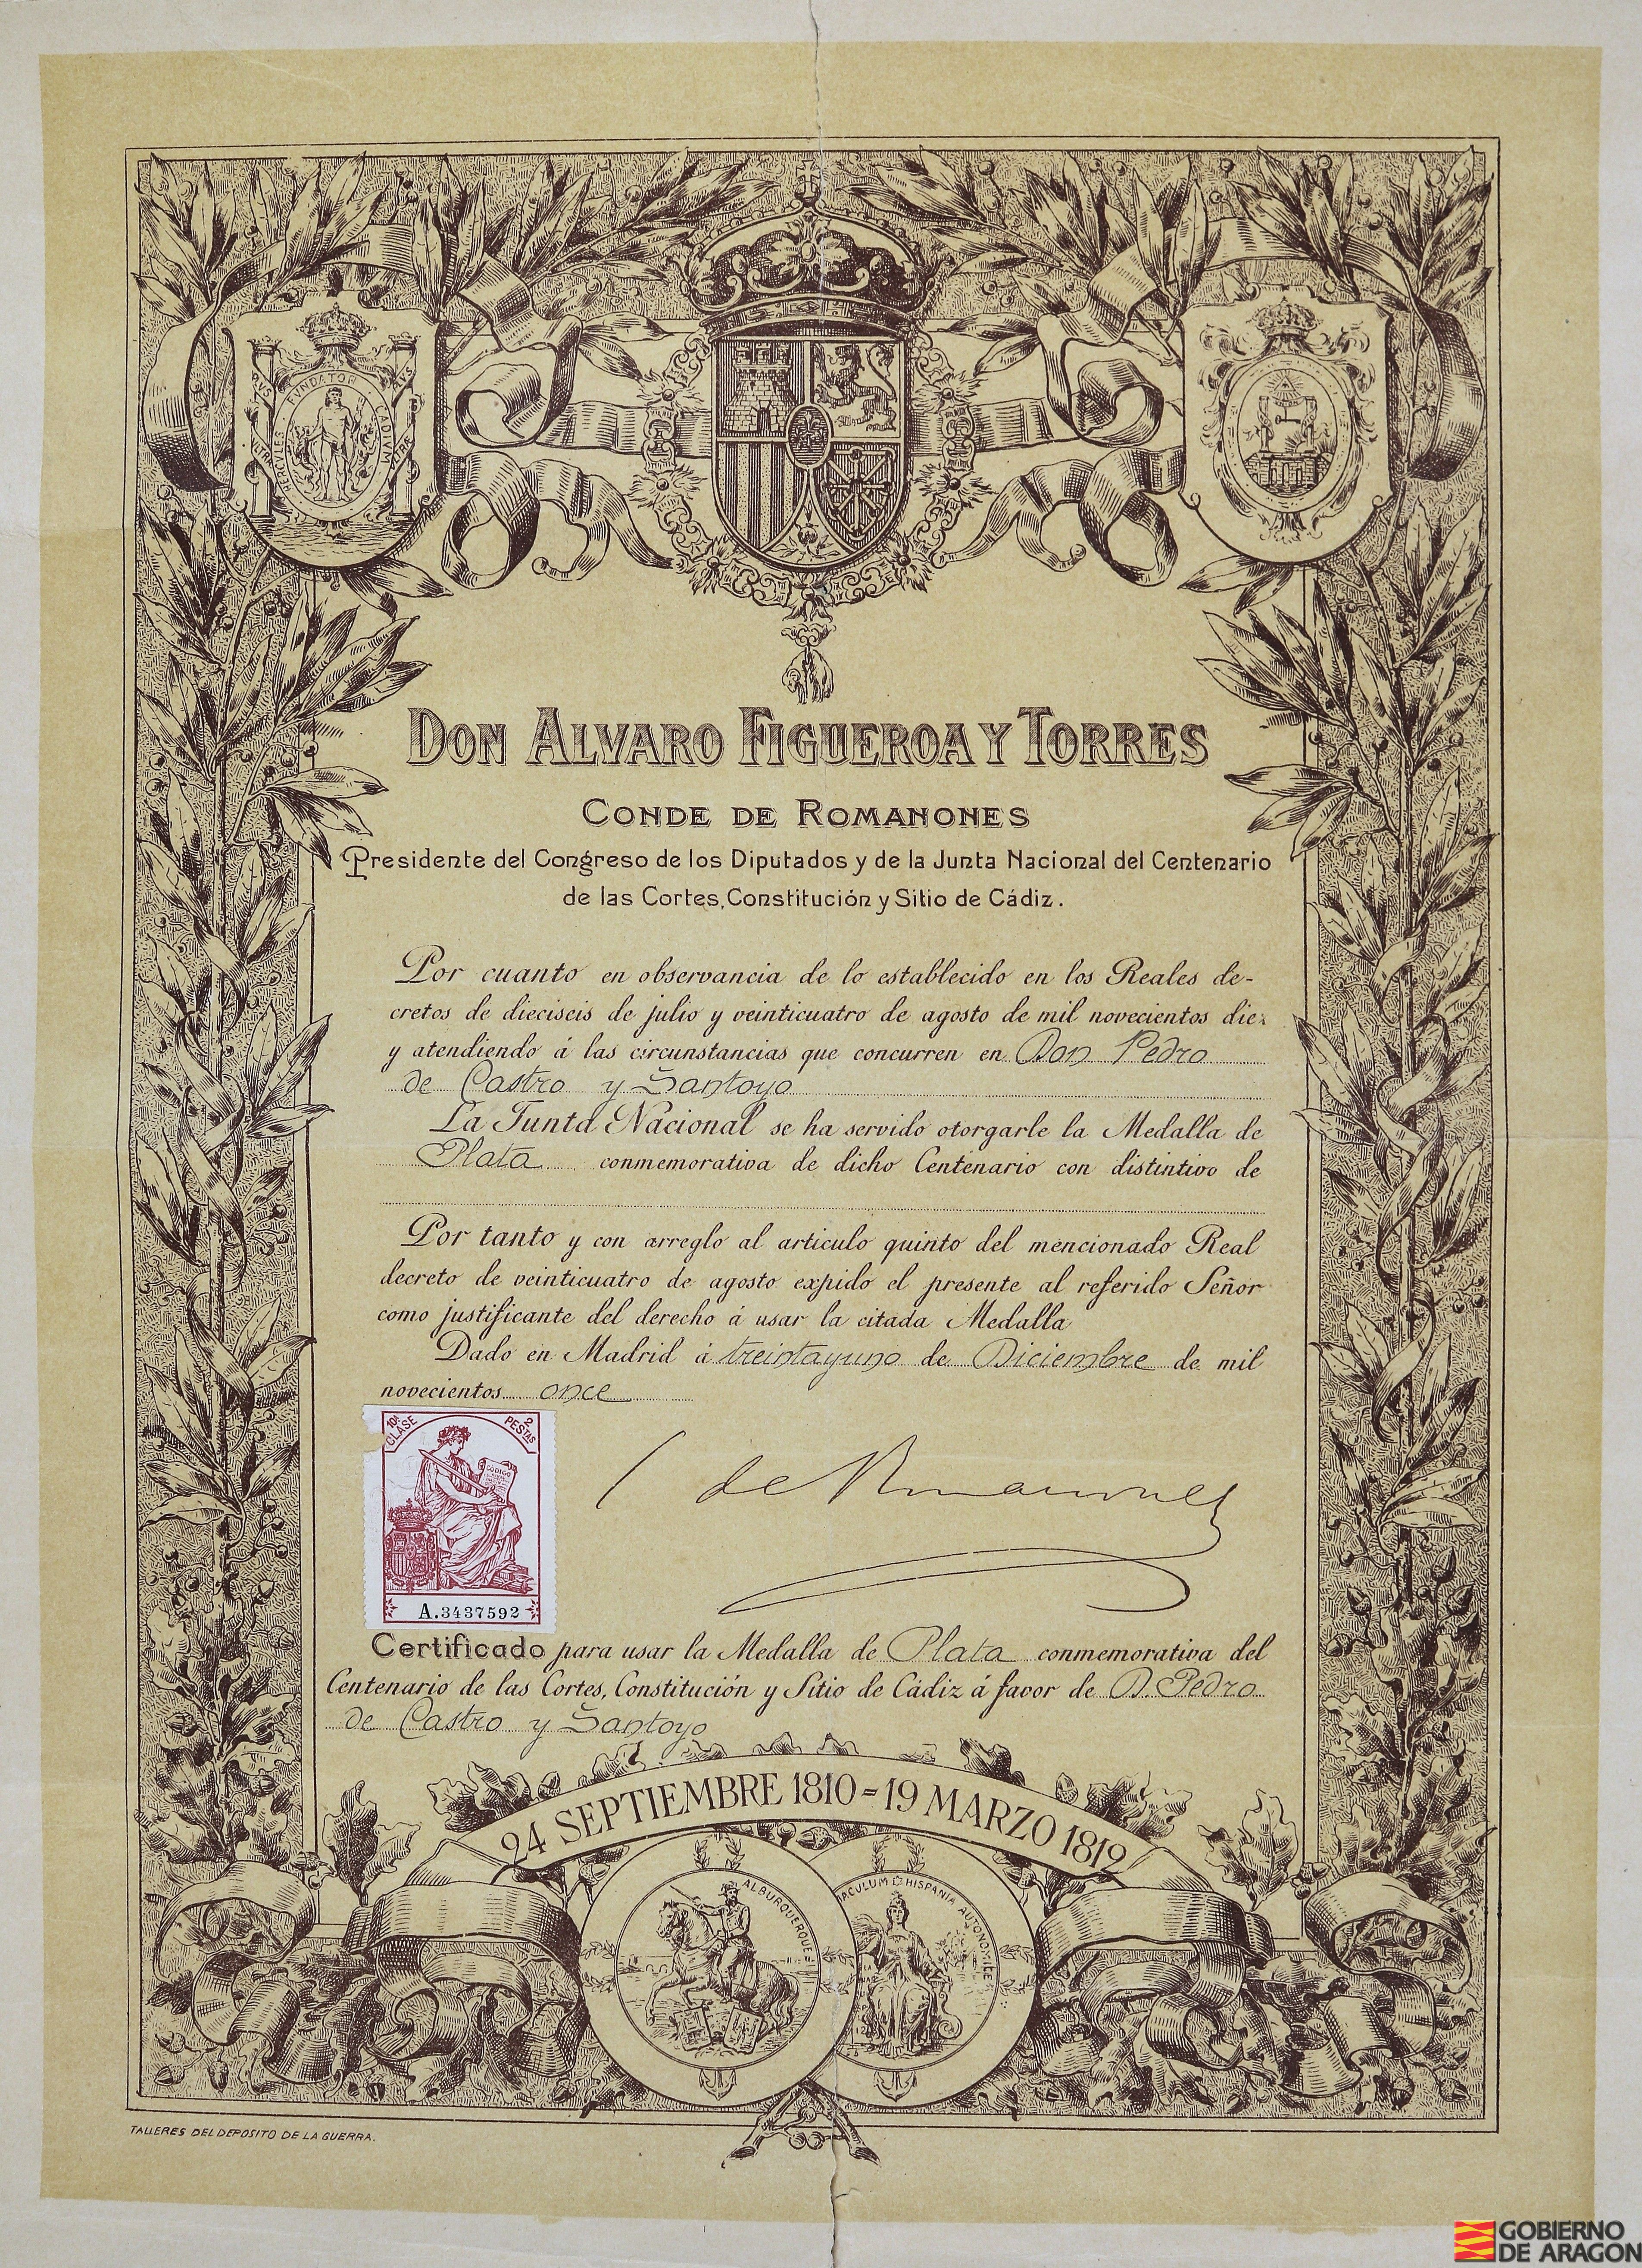 PLVS
VLTRA
HERCVLES FVNDATOR
GADIVM
DOMINATOR
DON ALVARO FIGUEROA Y TORRES
CONDE DE ROMANONES
Presidente del Congreso de los Diputados y de la Junta Nacional del Centenario
de las Cortes, Constitución y Sitio de Cádiz.
Por cuanto en observancia de lo establecido en los Reales de-
cretos de dieciseis de julio y veinticuatro de agosto de mil novecientos diez
y atendiendo á las circunstancias que concurren en Don Pedro
de Castro y Santoyo
La Junta Nacional se ha servido otorgarle la Medalla de
Plata conmemorativa de dicho Centenario con distintivo de
Por tanto y con arreglo al articulo quinto del mencionado Real
decreto de veinticuatro de agosto expido el presente al referido Señor
como justificante del derecho á usar la citada Medalla
Dado en Madrid á treintayuno de Diciembre de mil
novecientos once
10ª CLASE
2 PESTAS
CODIGO
A.3437592
C de Romanones
Certificado para usar la Medalla de Plata conmemorativa del
Centenario de las Cortes, Constitución y Sitio de Cádiz á favor de D. Pedro
de Castro y Santoyo
24 SEPTIEMBRE 1810=19 MARZO 1812
ALBURQUERQUE
HISPANIA
TALLERES DEL DEPOSITO DE LA GUERRA.
GOBIERNO
DE ARAGON